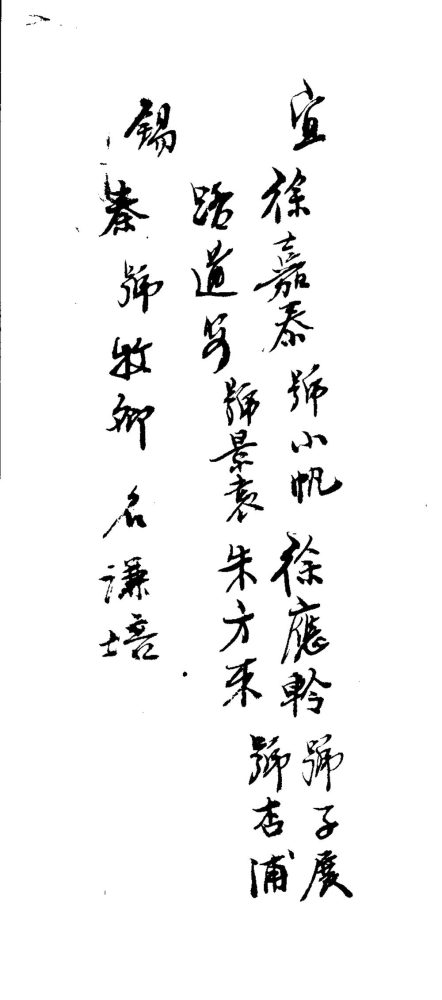 宜
徐嘉泰 號小帆 徐應軨 號子展
路道 號景袁 朱方來 號杏浦
錫
秦 號牧卿 名謙培